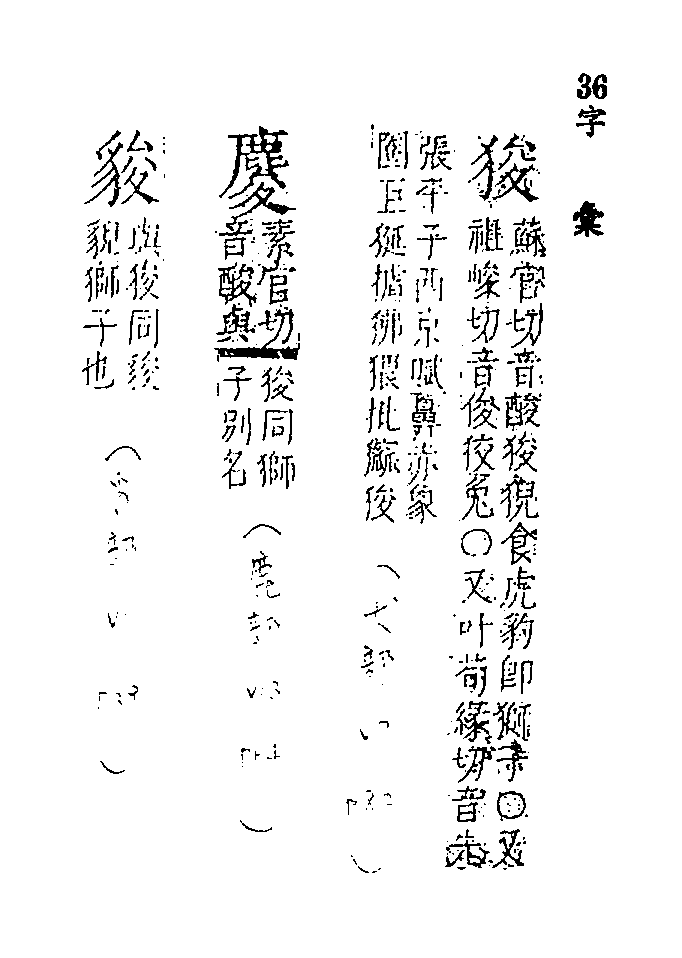 36字 彙
狻
蘇官切音酸狻猊食虎豹卽獅子○又
祖峻切音俊狡兔○又叶荀緣切音先
張平子西京賦鼻赤象
圈巨狿摣狒猬批窳狻
(犬部
素官切
音酸與
狻同獅
子別名
(鹿部 V13
與狻同狻
貎獅子也